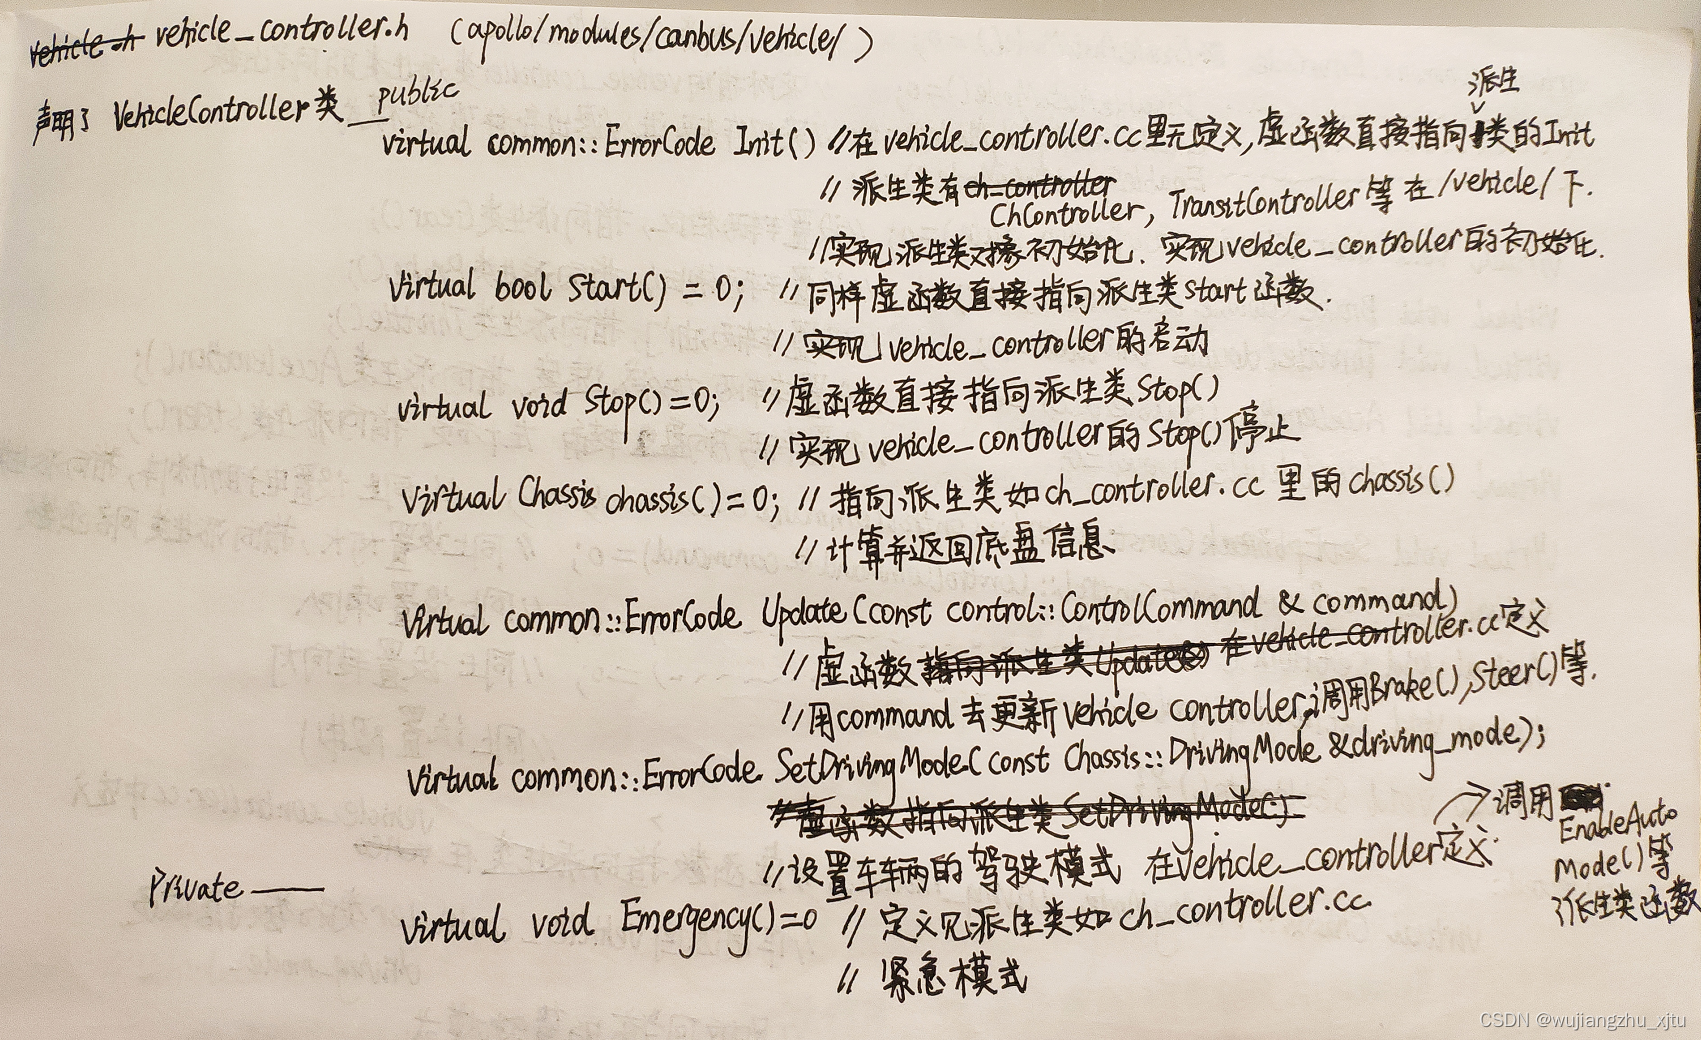 vehicle.h vehicle_controller.h (apollo/modules/canbus/vehicle/)
声明了 VehicleController类 —— public
派生
virtual common::ErrorCode Init() //在vehicle_controller.cc里无定义,虚函数直接指向类的Init
//派生类有ch_controller
ChController, TransitController等在/vehicle/下.
//实现派生类对象初始化. 实现vehicle_controller的初始化.
Virtual bool Start() = 0; //同样虚函数直接指向派生类Start函数.
//实现vehicle_controller的启动
virtual void Stop()=0; //虚函数直接指向派生类Stop()
//实现vehicle_controller的Stop()停止
Virtual Chassis chassis()=0; //指向派生类如ch_controller.cc里的chassis()
//计算并返回底盘信息
Virtual common::ErrorCode Update(const control::ControlCommand & command)
//虚函数指向派生类Update() 在vehicle_controller.cc定义
//用command去更新vehicle controller,调用Brake(),Steer()等.
Virtual common::ErrorCode SetDrivingMode(const Chassis::DrivingMode &driving_mode);
//虚函数指向派生类SetDrivingMode()
//设置车辆的驾驶模式 在Vehicle_controller定义.
调用
EnableAuto
Mode()等
派生类函数
Private ——
virtual void Emergency()=0 //定义见派生类如ch_controller.cc
//紧急模式
CSDN @wujiangzhu_xjtu